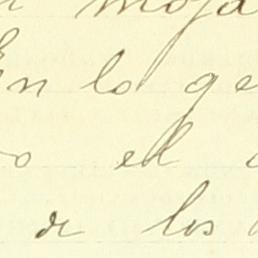 moja
En lo ge
o el
de los